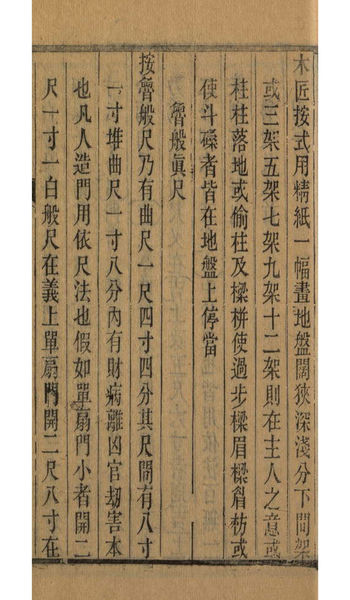 木匠按式用精紙一幅畫地盤闊狹深淺分下間架
或三架五架七架九架十二架則在主人之意或
柱柱落地或偷柱及樑栟使過步樑眉樑眉枋或
使斗磉者皆在地盤上停當
魯般眞尺
按魯般尺乃有曲尺一尺四寸四分其尺間有八寸
一寸堆曲尺一寸八分內有財病離凶官刼害本
也凡人造門用依尺法也假如單扇門小者開二
尺一寸一白般尺在義上單扇門開二尺八寸在